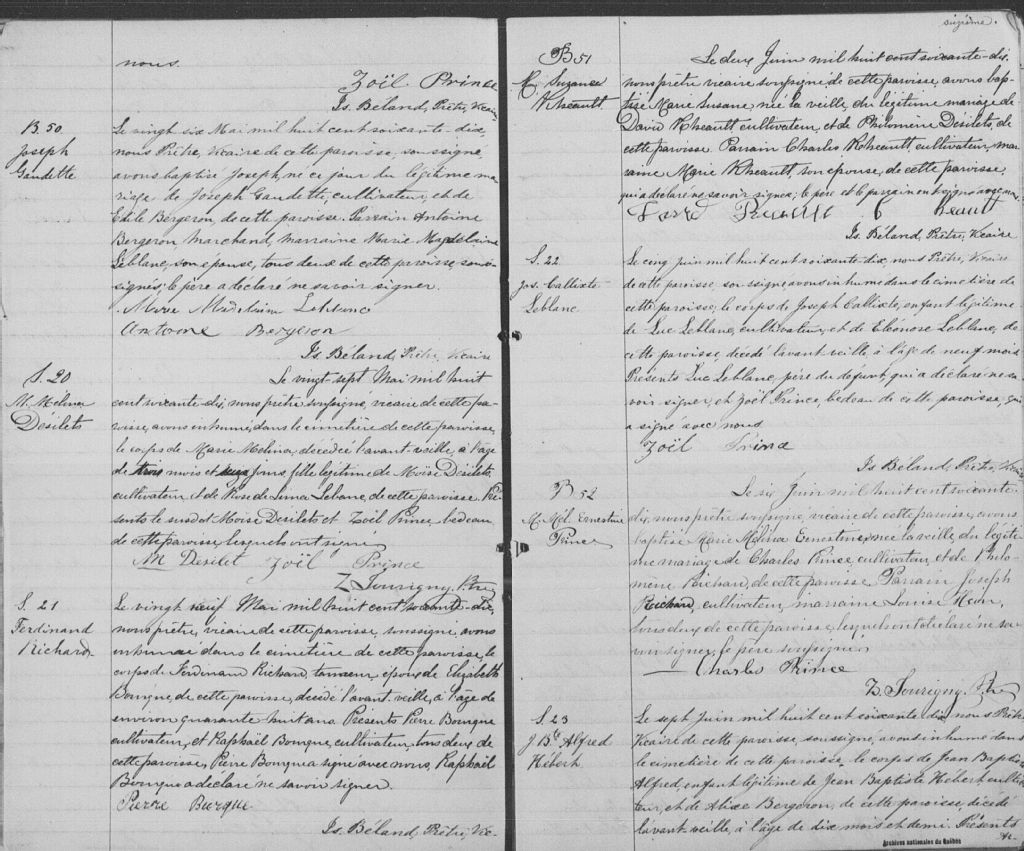 nous.
Zoël Prince
Is. Béland, Prêtre, Vicaire
B. 50
Joseph
Gaudette
Le vingt six Mai mil huit cent soixante-dix,
nous Prêtre, Vicaire de cette paroisse, soussigné,
avons baptisé Joseph, né ce jour du légitime ma
riage de Joseph Gaudette, cultivateur, et de
Bergeron, de cette paroisse. Parrain Antoine
Bergeron, marchand, marraine Marie Magdeleine
Leblanc, son épouse, tous deux de cette paroisse, sous-
signés; le père a déclaré ne savoir signer.
Marie Leblanc
Antoine Bergeron
Is. Béland, Prêtre, Vicaire
S. 20
M. Melina
Désilets
Le vingt-sept Mai mil huit
cent soixante-dix, nous prêtre soussigné, vicaire de cette pa-
roisse, avons inhumé, dans le cimetière de cette paroisse,
le corps de Marie Melina, décédée l'avant-veille, à l'âge
de trois mois et jours, fille légitime de Moïse Désilets
cultivateur, et de Rose de Lima Lebanc, de cette paroisse. Pré
sents le susdit Moïse Désilets et Zoël Prince, bedeau
de cette paroisse, lesquels ont signé
M Desilet Zoël Prince
Z. Tourigny, Ptre
S. 21
Ferdinand
Richard
Le vingt neuf Mai mil huit cent soixante-dix,
nous prêtre, vicaire de cette paroisse, soussigné, avons
inhumé dans le cimetière de cette paroisse, le
corps de Ferdinand Richard, tanneur, époux de Elizabeth
Bourque, de cette paroisse, décédé l'avant-veille, à l'âge de
environ quarante huit ans. Présents Pierre Bourque
cultivateur, et Raphaël Bourque, cultivateur, tous deux de
cette paroisse, Pierre Bourque a signé avec nous, Raphaël
Bourque a déclaré ne savoir signer.
Pierre Burque
Is. Béland, Prêtre, Vic-
sixième.
B 51
M. Suzanne
Rheault
Le deux Juin mil huit cent soixante-dix,
nous prêtre vicaire soussigné, de cette paroisse, avons bap-
tisé Marie Susane, née la veille, du légitime mariage de
David Rheault, cultivateur, et de Philomène Désilets, de
cette paroisse. Parrain Charles Rheault, cultivateur, mar
raine Marie Rheault, son épouse, de cette paroisse,
qui a déclaré ne savoir signer; le père et le parrain ont signé avec nous.
Is. Béland, Prêtre, Vicaire
S. 22
Jos. Callixte
Leblanc
Le cinq Juin mil huit cent soixante dix, nous Prêtre, Vicaire
de cette paroisse, soussigné avons inhumé dans le cimetière de
cette paroisse, le corps de Joseph Callixte, enfant légitime
de Luc Leblanc, cultivateur, et de Eléonore Leblanc, de
cette paroisse, décédé l'avant veille, à l'âge de neuf mois
Présents Luc Leblanc, père du défunt, qui a déclaré ne sa
voir signer, et Zoël Prince, bedeau de cette paroisse, qui
a signé avec nous
Zoël Prince
Is Béland, Prêtre, Vicaire
B 52
M. Mél. Ernestine
Prince
Le six Juin mil huit cent soixante
dix, nous prêtre soussigné, vicaire de cette paroisse, avons
baptisé Marie Mélina Ernestine, née la veille du légiti
me mariage de Charles Prince, cultivateur, et de Philo-
mène Richard, de cette paroisse. Parrain Joseph
Richard, cultivateur, marraine Louise
tous deux de cette paroisse, lesquels ont déclaré ne sa-
voir signer, le père soussigné
Charles Prince
Z. Tourigny, Ptre
S. 23
J Bte Alfred
Hébert
Le sept Juin mil huit cent soixante dix nous Prêtre
Vicaire de cette paroisse, soussigné, avons inhumé dans
le cimetière de cette paroisse, le corps de Jean Baptiste
Alfred, enfant légitime de Jean Baptiste Hébert, cultiva
teur, et de Alixe Bergeron, de cette paroisse, décédé
l'avant-veille, à l'âge de dix mois et demi. Présents
Archives nationales du Québec